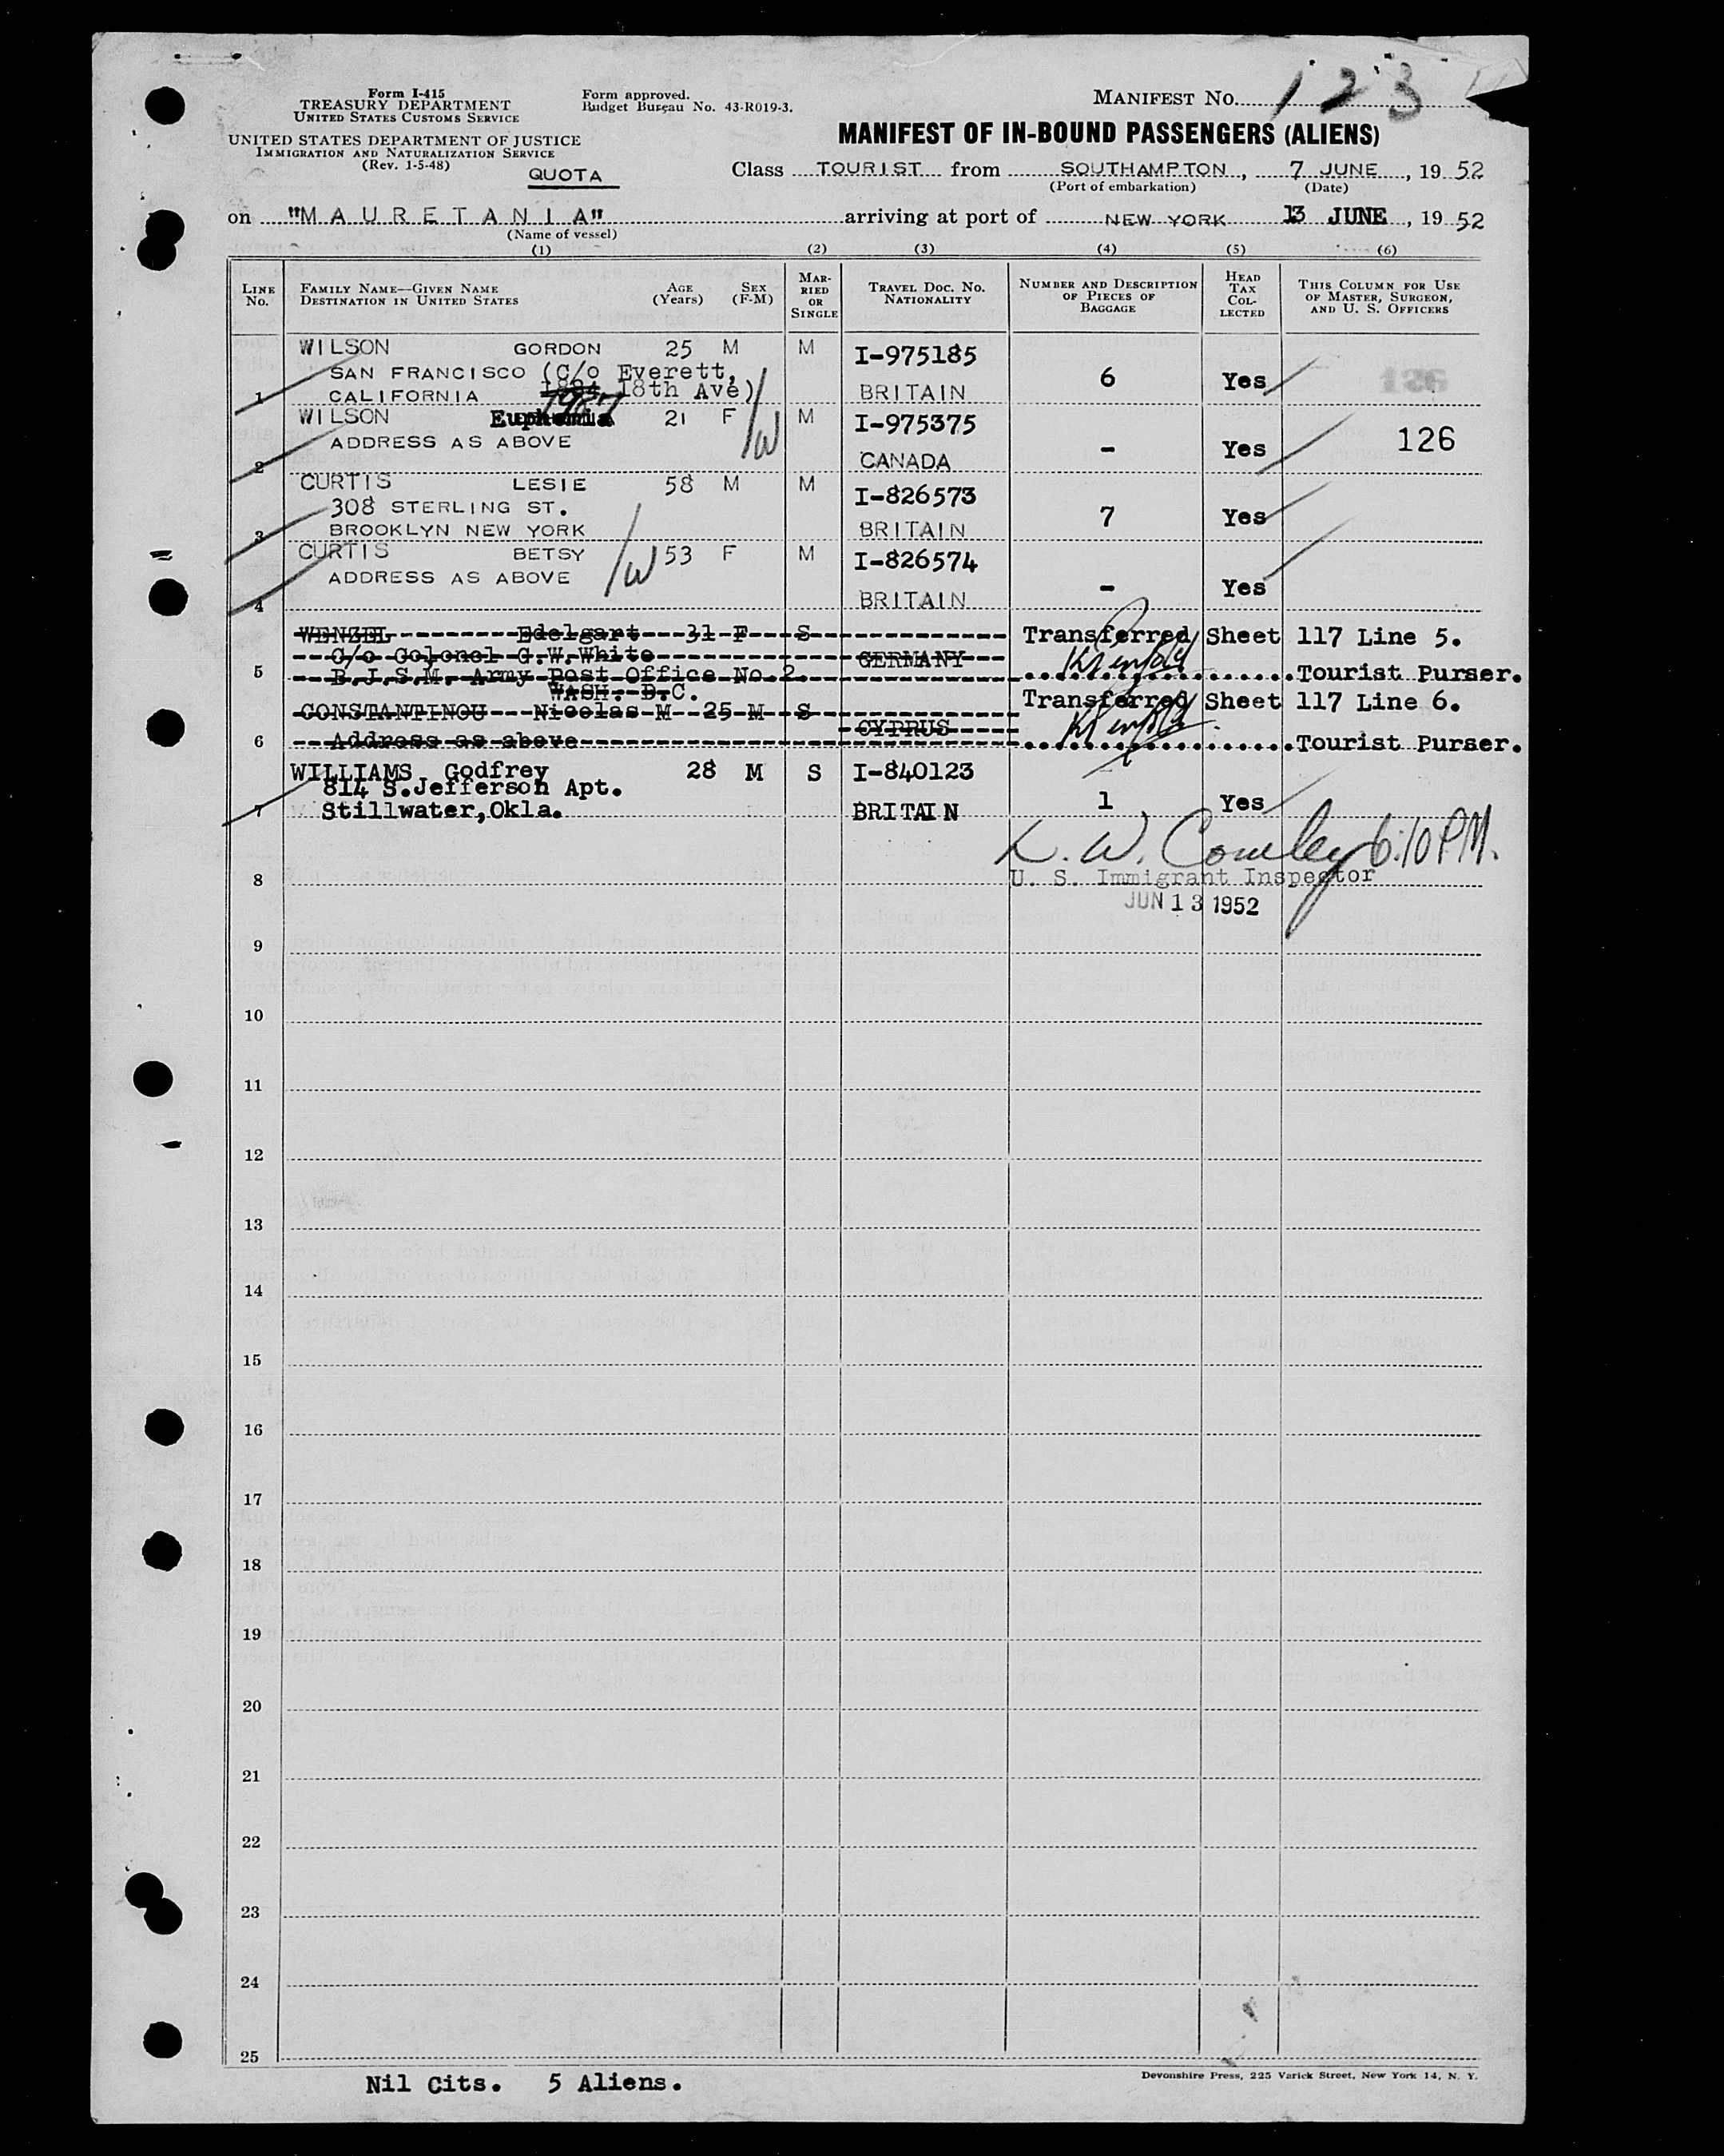 Form I-415
TREASURY DEPARTMENT
UNITED STATES CUSTOMS SERVICE
UNITED STATES DEPARTMENT OF JUSTICE
IMMIGRATION AND NATURALIZATION SERVICE
(Rev. 1-5-48)
QUOTA
Form approved.
Budget Bureau No. 43-R019-3.
MANIFEST NO. 123
MANIFEST OF IN-BOUND PASSENGERS (ALIENS)
Class TOURIST from SOUTHAMPTON, 7 JUNE, 19 52
(Port of embarkation) (Date)
on "MAURETANIA" arriving at port of NEW YORK 13 JUNE, 19 52
(Name of vessel)
(1) (2) (3) (4) (5) (6)
LINE NO. FAMILY NAME—GIVEN NAME DESTINATION IN UNITED STATES AGE (Years) SEX (F-M) MARRIED OR SINGLE TRAVEL DOC. NO. NATIONALITY NUMBER AND DESCRIPTION OF PIECES OF BAGGAGE HEAD TAX COLLECTED THIS COLUMN FOR USE OF MASTER, SURGEON, AND U. S. OFFICERS
WILSON GORDON 25 M M I-975185
SAN FRANCISCO (C/o Everett,
1 CALIFORNIA 18th Ave) BRITAIN 6 Yes
WILSON Euphemia 21 F M I-975375
ADDRESS AS ABOVE W 126
2 CANADA - Yes
CURTIS LESIE 58 M M I-826573
308 STERLING ST.
3 BROOKLYN NEW YORK BRITAIN 7 Yes
CURTIS BETSY W 53 F M I-826574
ADDRESS AS ABOVE
4 BRITAIN - Yes
WENZEL Edelgart 31 F S Transferred Sheet 117 Line 5.
C/o Colonel G.W.White GERMANY
5 B.J.S.M. Army Post Office No.2. Tourist Purser.
WASH. D.C.
CONSTANTINOU Nicolas M 25 M S Transferred Sheet 117 Line 6.
CYPRUS
6 Address as above Tourist Purser.
WILLIAMS Godfrey 28 M S I-840123
814 S.Jefferson Apt.
7 Stillwater,Okla. BRITAIN 1 Yes
6:10 PM.
8 U. S. Immigrant Inspector
JUN 13 1952
9
10
11
12
13
14
15
16
17
18
19
20
21
22
23
24
25
Nil Cits. 5 Aliens.
Devonshire Press, 225 Varick Street, New York 14, N. Y.